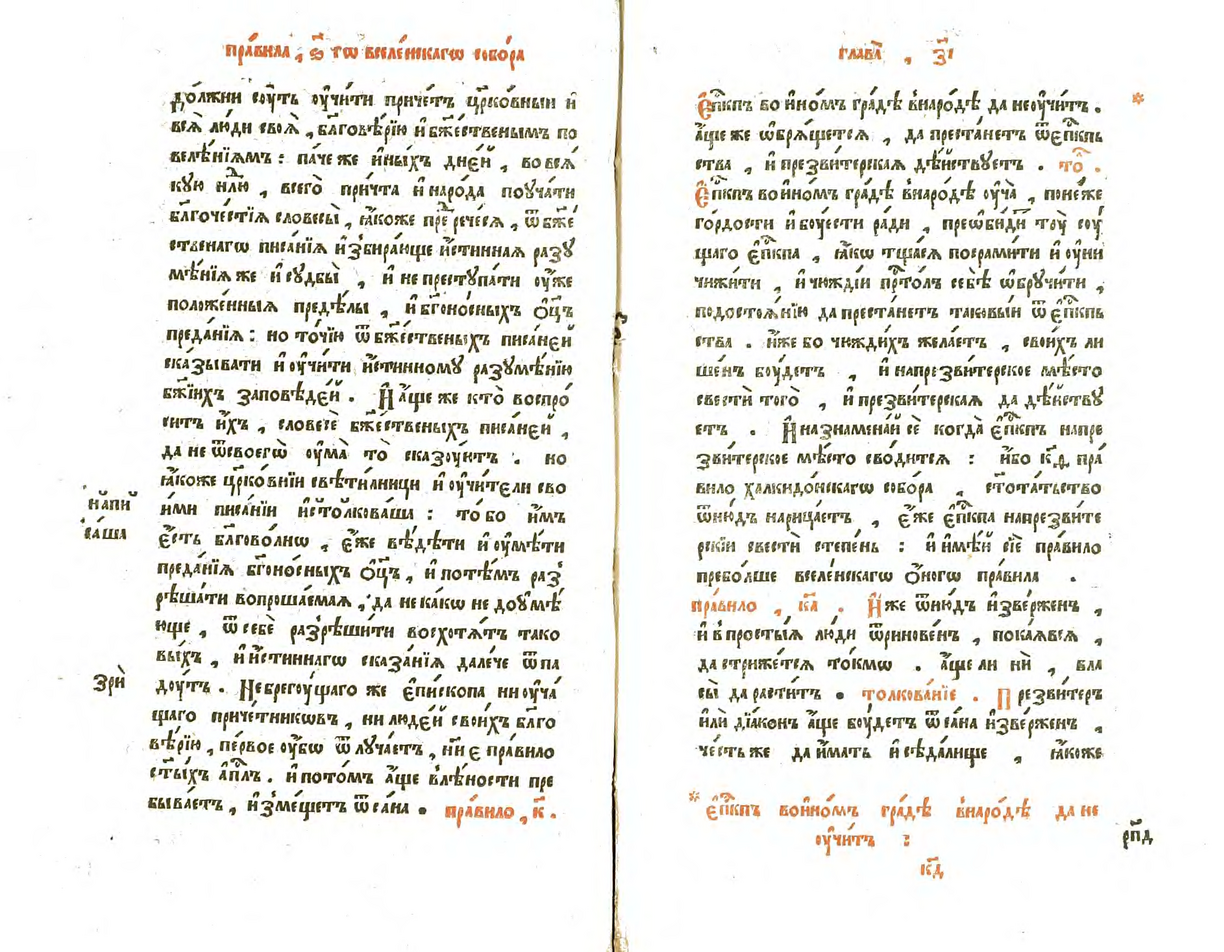 пра́вила , ѕ҃ гѡ вселе́нскагѡ собо́ра
до́лжни сꙋ́ть ᲂу҆чи́ти при́четъ цр҃ко́вныи и҆
всѧ̀ лю́ди своѧ̀ , бл҃гове́рїю и҆ бж҃е́ственымъ по
велѣ́нїѧмъ : па́че же и҆ны́хъ дне́й , во всѧ́
кую нлⷣю , всего̀ при́чта и҆ наро́да поуча́ти
бл҃гоче́стїѧ словесы̀ , ꙗ҆́коже преⷣрече́сѧ , ѿ бж҃е́
ственагѡ писа́нїѧ и҆збира́юще и҆́стиннаѧ разꙋ
мѣ́нїѧ же и҆ сꙋдбы̀ , и҆ не престꙋпа́ти ᲂу҆́же
положе́нныѧ предѣ́лы , и҆ бг҃оно́сныхъ ѻ҆ц҃ъ
преда́нїѧ : но то́чїю ѿ бж҃е́ственыхъ писа́нєи
ска́зывати и҆ ᲂу҆чи́ти и҆́стинномꙋ разꙋмѣ́нїю
бж҃їихъ за́повѣдєи . И҆ а҆́ще же кто̀ воспро́
ситъ и҆́хъ , словесѐ бж҃е́ственыхъ писа́нєи ,
да не ѿ своегѡ̀ ᲂу҆ма̀ то̀ ска́зꙋитъ . но
ꙗ҆́коже цр҃ко́внїи свѣти́лницы и҆ ᲂу҆чи́тели сво
и́ми писа́нїи и҆столкова́ша : то́ бо и҆́мъ
є҆́сть бл҃говоли́ѡ , є҆́же вѣ́дѣти и҆ ᲂу҆мѣ́ти
преда́нїѧ бг҃оно́сныхъ ѻ҆ц҃ъ , и҆ пото́мъ раз
рѣша́ти вопроша́емаѧ , да не ка́кѡ не доꙋмѣ́
юще , ѿ себѐ разрѣши́ти восхотѧ́тъ тако
вы́хъ , и҆ и҆́стиннагѡ сказа́нїѧ дале́че ѿпа
до́утъ . Небрегꙋ́щаго же є҆пи́скопа ни ᲂу҆ча́
щаго приче́тникѡвъ , ни люде́й свои́хъ бл҃го
вѣ́рїю , пе́рвое ᲂу҆́бѡ ѿлꙋча́етъ , н҃и є пра́вило
ст҃ы́хъ а҆пⷭ҇лъ . и҆ пото́мъ а҆́ще в̾лѣ́ности пре
быва́етъ , и҆зме́щетъ ѿ са́на . пра́вило , к҃ .
на́пи
са́ша
зрѝ
глава̀ , з҃і
Е҆пⷭ҇кпъ во и҆но́мъ гра́дѣ в̾наро́дѣ да не ᲂу҆чи́тъ . *
а҆́ще же ѡ҆брѧ́щетсѧ , да преста́нетъ ѿ є҆пⷭ҇кпь
ства , и҆ презви́терскаѧ дѣ́йствꙋетъ . тоⷧ .
Е҆пⷭ҇кпъ во и҆но́мъ гра́дѣ в̾наро́дѣ ᲂу҆ча̀ , поне́же
го́рдости и҆ бꙋ́ести ра́ди , преѡби́дѝ тꙋ̀ сꙋ́
щаго є҆пⷭ҇кпа , ꙗ҆́кѡ тща́сѧ посрами́ти и҆ ᲂу҆ни
чижи́ти , и҆ чю́ждїи пртⷭ҇о́лъ себѣ̀ ѡ҆брꙋчи́ти ,
подостоѧ́нїю да преста́нетъ таковы́и ѿ є҆пⷭ҇кпь
ства . и҆́же бо чюжди́хъ жела́етъ , свои́хъ ли
ше́нъ бꙋ́детъ , и҆ напрезви́терское мѣ́сто
свестѝ того̀ , и҆ презви́терскаѧ да дѣ́йствꙋ
етъ . И҆ назнамена́й сѐ когда̀ є҆пⷭ҇кпъ напре
зви́терское мѣ́сто сво́дитсѧ : и҆́бо к҃ѳ , пра́
вило халкидо́нскагѡ собо́ра , стота́тьство
ѿню́дъ нарица́етъ , є҆́же є҆пⷭ҇кпа напрезви́те
рскїи свестѝ сте́пень : и҆ и҆мѣ́й сїѐ пра́вило
пребо́лше вселе́нскагѡ ѻ҆́ногѡ пра́вила .
пра́вило , к҃а . И҆́же ѿню́дъ и҆зве́рженъ ,
и҆ в̾ просты́ѧ лю́ди ѿринове́нъ , пока́ѧвсѧ ,
да стриже́тсѧ то́кмѡ . а҆́ще ли нѝ , вла
сы̀ да расти́тъ . толкова́нїе . Презви́теръ
и҆лѝ дїа́конъ а҆́ще бꙋ́детъ ѿ са́на и҆зве́рженъ ,
че́сть же да и҆́мать и҆ сѣда́лище , ꙗ҆́коже
* є҆пⷭ҇кпъ во и҆но́мъ гра́дѣ в̾наро́дѣ да не
ᲂу҆чи́тъ :
рп҃д
к҃д